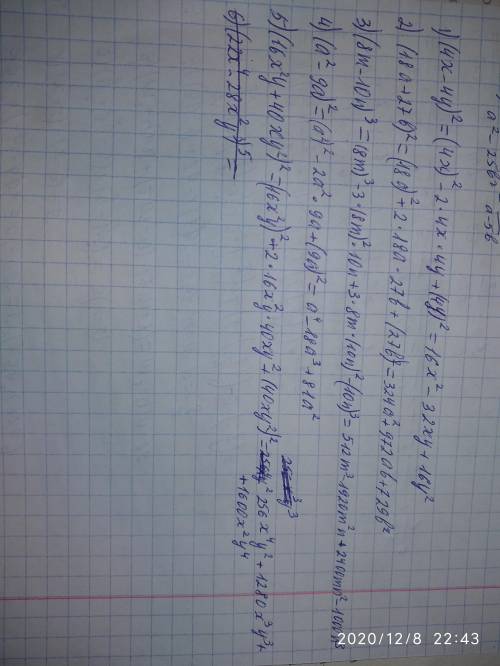 1) (4x-4y)² = (4x)² - 2·4x·4y + (4y)² = 16x² - 32xy + 16y²
2) (18a+27b)² = (18a)² + 2·18a·27b + (27b)² = 324a² + 972ab + 729b²
3) (8m-10n)³ = (8m)³ - 3·(8m)²·10n + 3·8m·(10n)² - (10n)³ = 512m³ - 1920m²n + 2400mn² - 1000n³
4) (a²-9a)² = (a²)² - 2a²·9a + (9a)² = a⁴ - 18a³ + 81a²
5) (16x²y + 40xy²)² = (16x²y)² + 2·16x²y·40xy² + (40xy²)² = 256x⁴y² + 1280x³y³ +
+ 1600x²y⁴
6) (12x⁴ - 28x²y)⁵ =
2020/12/8 22:43